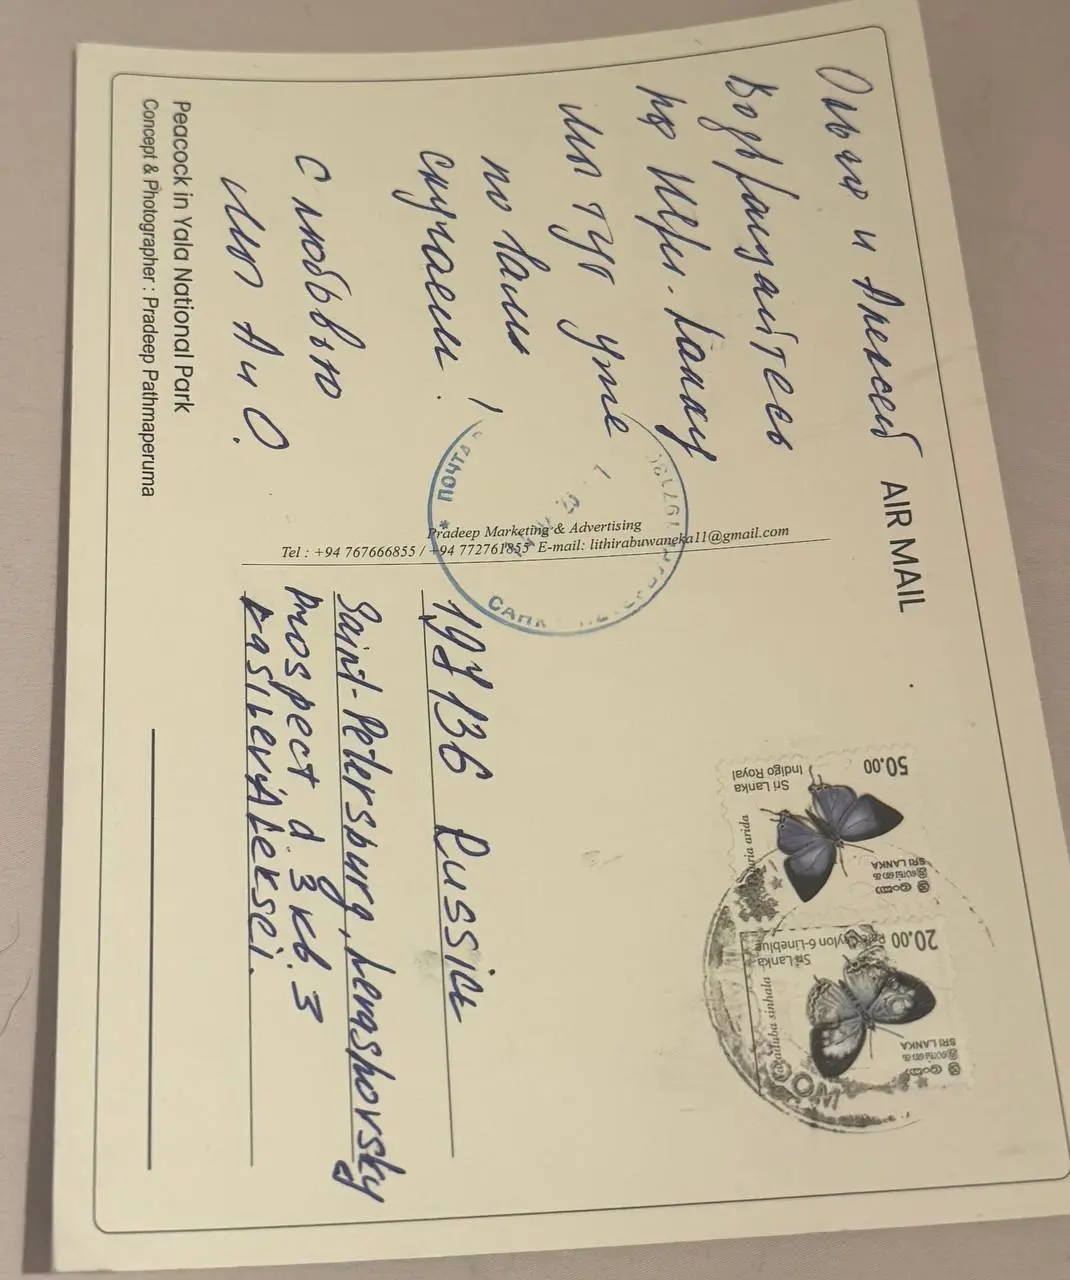 AIR MAIL
Ольга и Алексей
Возвращайтесь
на Шри-Ланку
мы тут уже
по вам
скучаем.
С любовью
мы А и О.
Peacock in Yala National Park
Concept & Photographer : Pradeep Pathmaperuma
Pradeep Marketing & Advertising
Tel : +94 767666855 / +94 772761855 E-mail: lithirabuwaneka11@gmail.com
197136 Russia
Saint-Petersburg, Lenashovsky
prospect d. 3 кв. 3
Vasilevi Aleksei.
50.00
Sri Lanka
Indigo Royal
SRI LANKA
20.00
Sri Lanka
SRI LANKA
ПОЧТА
197136